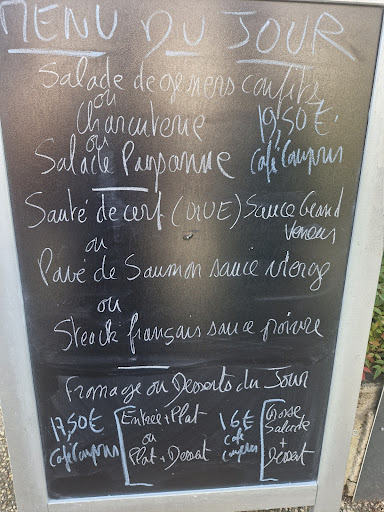 MENU DU JOUR
Salade de gésiers confits
ou
Charcuterie 19,50€
ou
Salade Paysanne Café Compris
Sauté de cerf (OIVE) Sauce Grand
Veneur
ou
Pavé de Saumon sauce vierge
ou
Steack français sauce poivre
Fromage ou Desserts du Jour
17,50€
Café Compris
Entrée + Plat
ou
Plat + Dessert
16€
Café
Compris
Grosse
Salade
+
Dessert